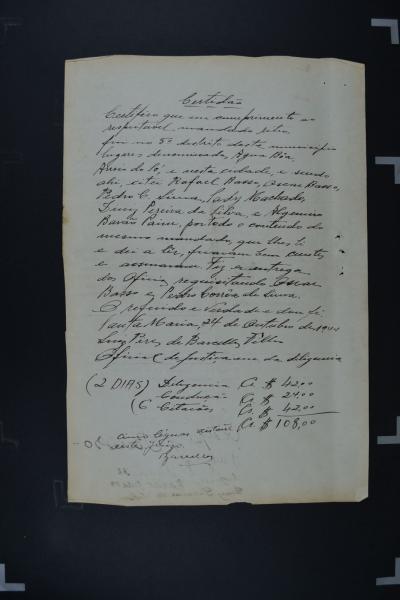 Certidão
Certifico que em cumprimento ao
respeitavel mandado retro,
fui no 5º districto deste municipio
lugares denominada, Agua Bôa,
e nesta cidade, e sendo
ahi, citei Rafael Basso, Oscar Basso,
Pedro C. Lima, Machado,
Pereira da Silva, e
Paim, por todo o conteudo do
mesmo mandado, que lhes li
e dei a lêr, ficaram bem cientes
e assinaram. Fez a entrega
dos Oficios requisitando Oscar
Basso e Pedro Corrêa de Lima.
O referido é verdade e dou fé.
Santa Maria, 24 de Outubro de 1944
Luiz Pires de Barcellos Filho
Oficial de Justiça da diligencia
(2 DIAS) Diligencia Cr. $ 42,00
Condução Cr. $ 24,00
(6 Citacões Cr. $ 42,00
Cr. $ 108,00
cinco leguas distante
deste
Barcellos